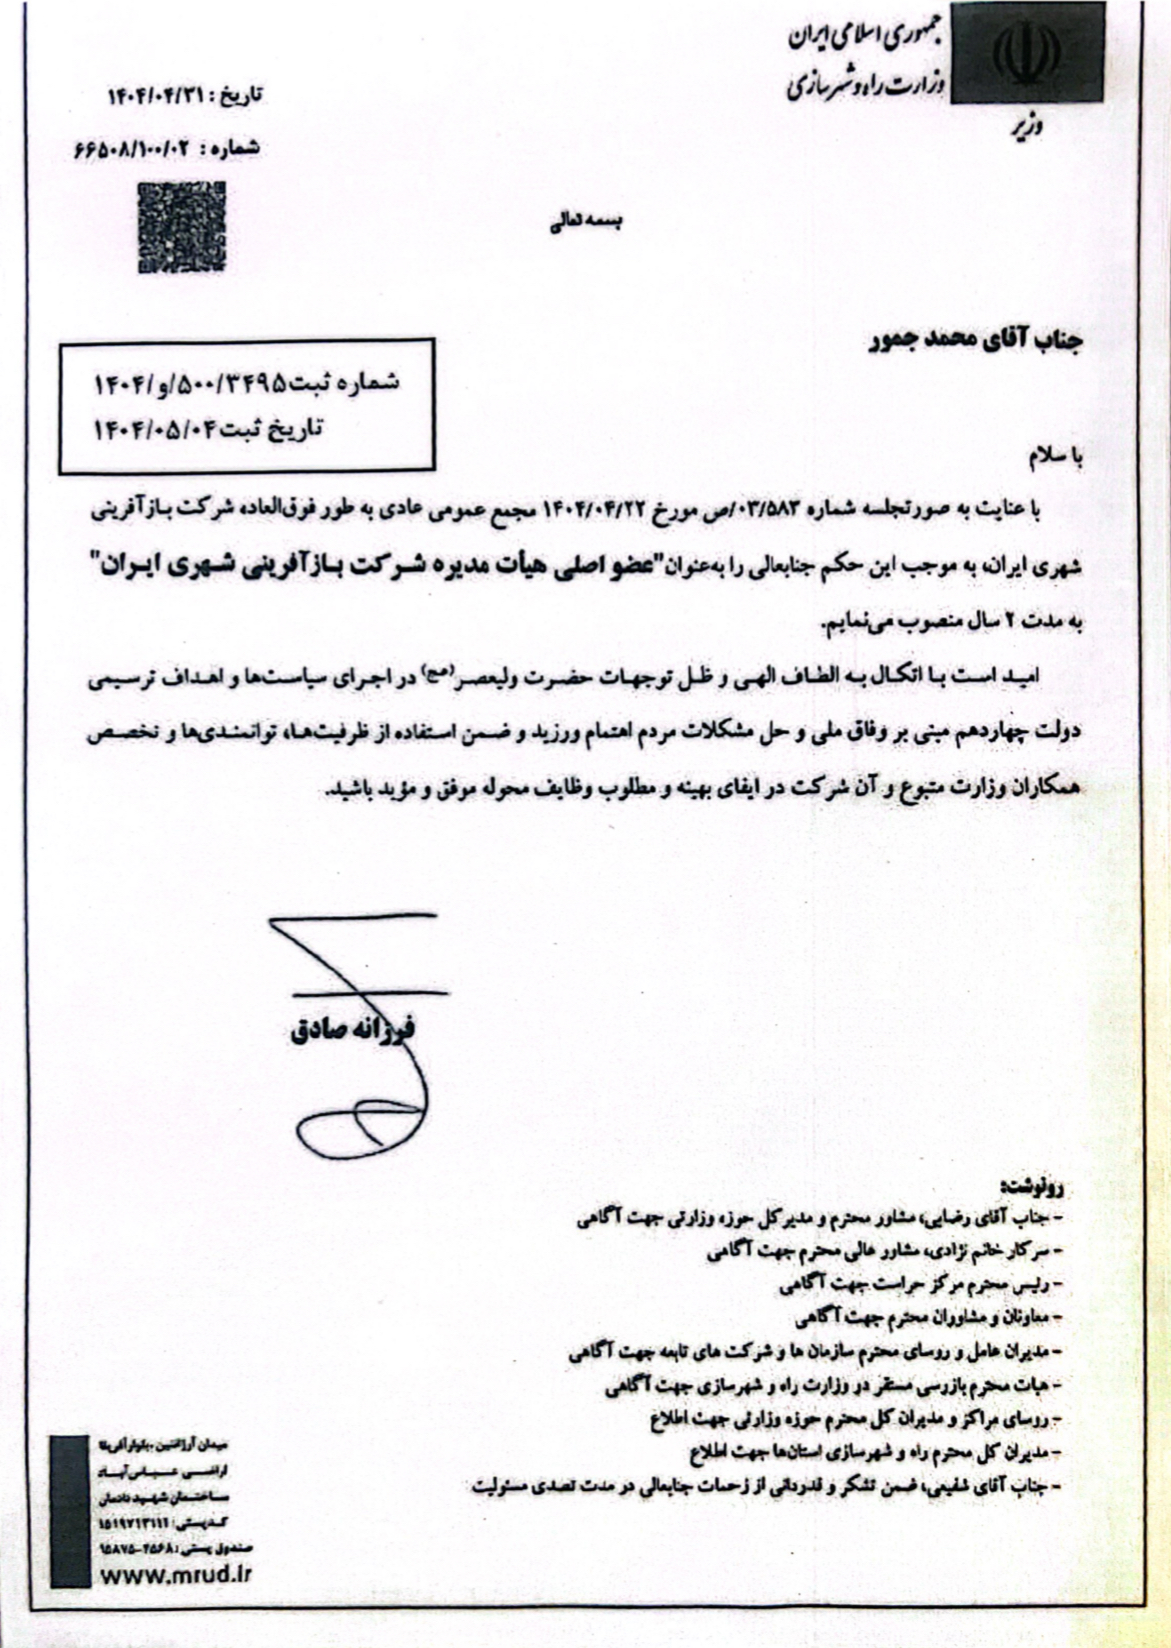 جمهوری اسلامی ایران
وزارت راه و شهرسازی
وزیر
تاریخ : ۱۴۰۴/۰۴/۳۱
شماره : ۶۶۵۰۸/۱۰۰/۰۲
بسمه تعالی
جناب آقای محمد جمور
شماره ثبت۵۰۰/۳۴۹۵/و/۱۴۰۴
تاریخ ثبت۱۴۰۴/۰۵/۰۴
با سلام
با عنایت به صورتجلسه شماره ۰۳/۵۸۳/ص مورخ ۱۴۰۴/۰۴/۲۲ مجمع عمومی عادی به طور فوق‌العاده شرکت بازآفرینی
شهری ایران، به موجب این حکم جنابعالی را به‌عنوان"عضو اصلی هیأت مدیره شرکت بازآفرینی شهری ایران"
به مدت ۲ سال منصوب می‌نمایم.
امید است با اتکال به الطاف الهی و ظل توجهات حضرت ولیعصر(عج) در اجرای سیاست‌ها و اهداف ترسیمی
دولت چهاردهم مبنی بر وفاق ملی و حل مشکلات مردم اهتمام ورزید و ضمن استفاده از ظرفیت‌ها، توانمندی‌ها و تخصص
همکاران وزارت متبوع و آن شرکت در ایفای بهینه و مطلوب وظایف محوله موفق و مؤید باشید.
فرزانه صادق
رونوشت:
- جناب آقای رضایی، مشاور محترم و مدیرکل حوزه وزارتی جهت آگاهی
- سرکار خانم نژادی، مشاور عالی محترم جهت آگاهی
- رئیس محترم مرکز حراست جهت آگاهی
- معاونان و مشاوران محترم جهت آگاهی
- مدیران عامل و روسای محترم سازمان ها و شرکت های تابعه جهت آگاهی
- هیات محترم بازرسی مستقر در وزارت راه و شهرسازی جهت آگاهی
- روسای مراکز و مدیران کل محترم حوزه وزارتی جهت اطلاع
- مدیران کل محترم راه و شهرسازی استان‌ها جهت اطلاع
- جناب آقای شفیعی، ضمن تشکر و قدردانی از زحمات جنابعالی در مدت تصدی مسئولیت
میدان آرژانتین ،بلوار آفریقا
اراضی عباس‌آباد
ساختمان شهید دادمان
کدپستی: ۱۵۱۹۷۱۳۱۱۱
صندوق پستی: ۴۵۶۸-۱۵۸۷۵
www.mrud.ir